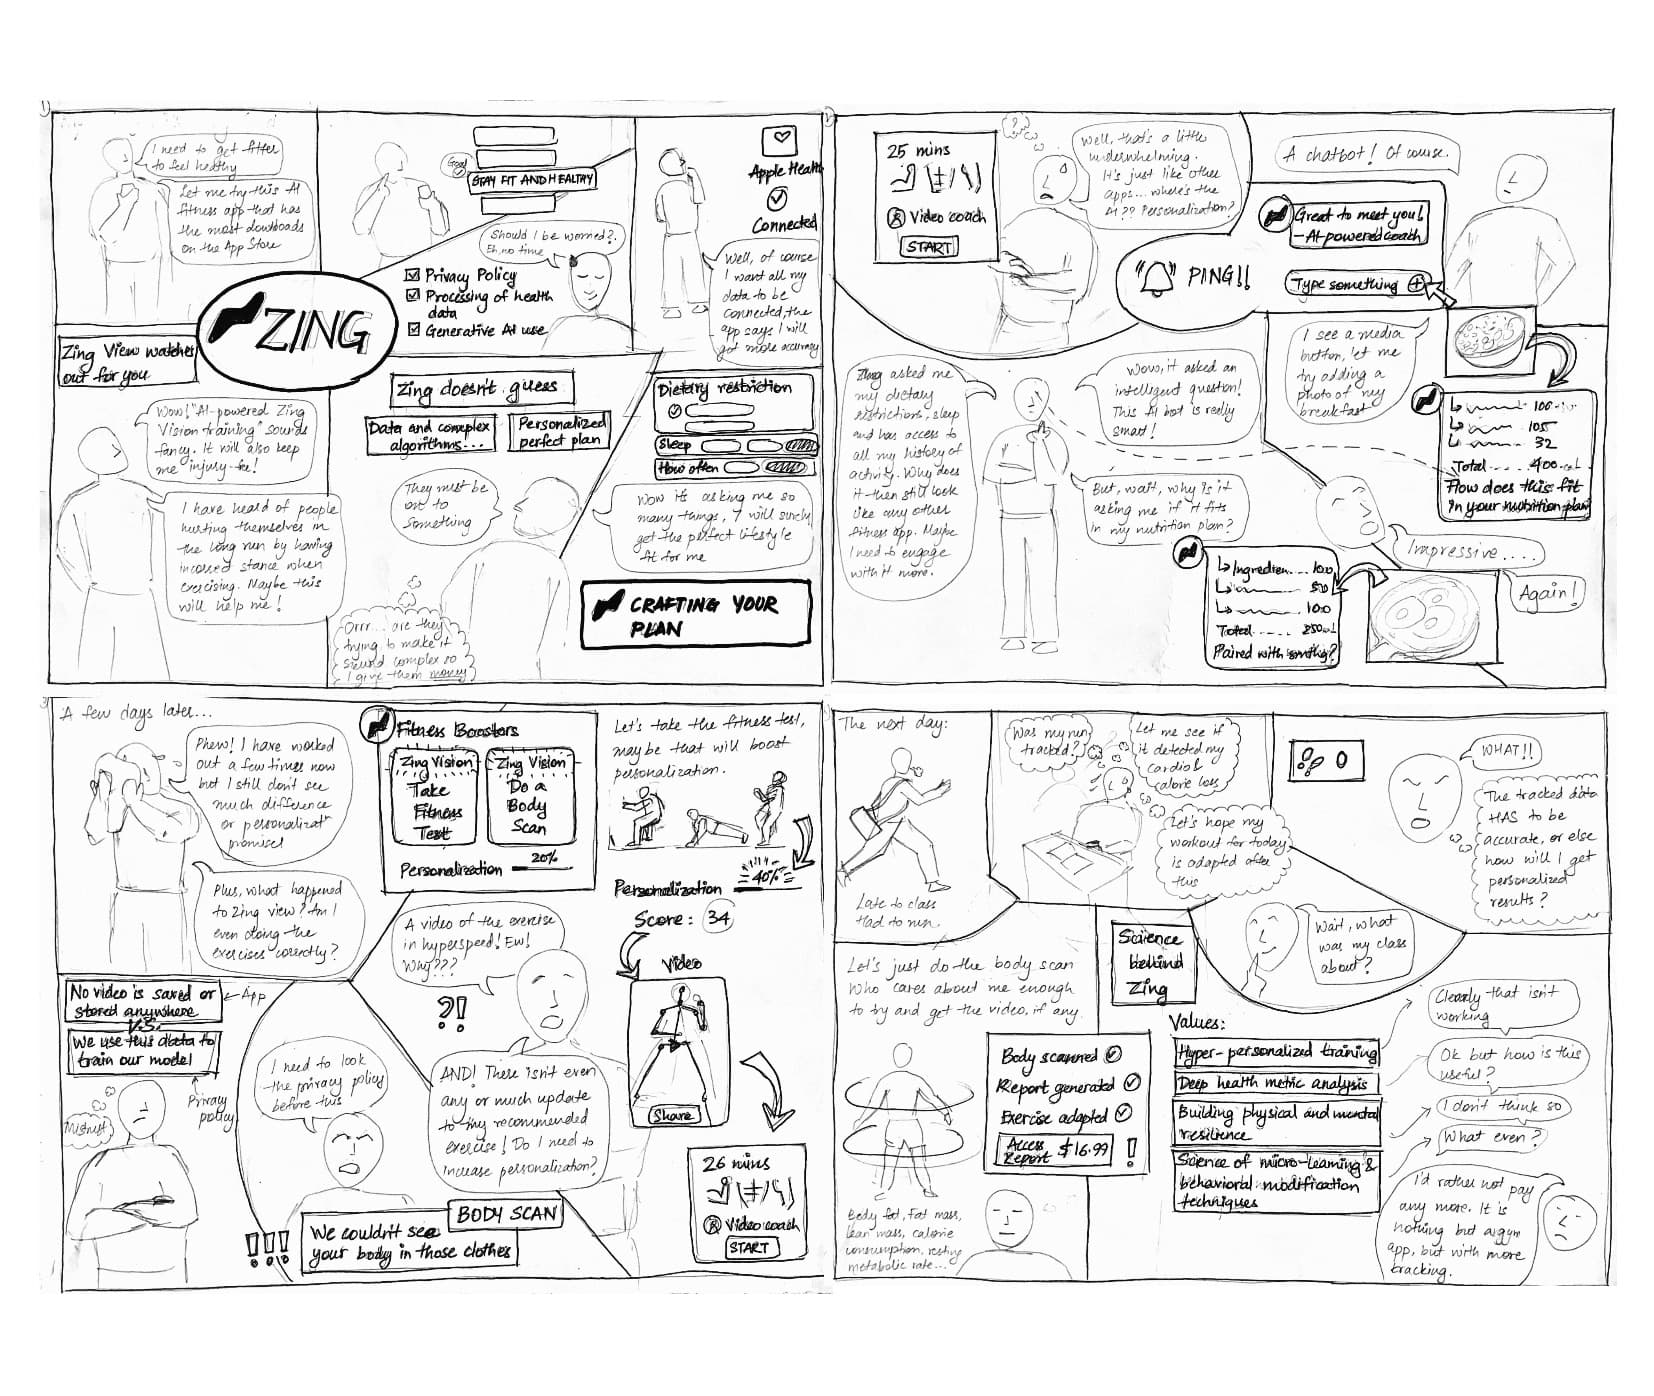 1)
I need to get fitter
to feel healthy
Let me try this AI
fitness app that has
the most dowloads
on the App Store
Goal
STAY FIT AND HEALTHY
Should I be worried?
Eh, no time
Privacy Policy
Processing of health
data
Generative AI use
Apple Health
Connected
Well, of course
I want all my
data to be
connected, the
app says I will
get more accuracy
ZING
Zing View watches
out for you
Wow! "AI-powered Zing
Vision training" sounds
fancy. It will also keep
me injury-free!
I have heard of people
hurting themselves in
the long run by having
incorrect stance when
exercising. Maybe this
will help me!
Zing doesn't guess
Data and complex
algorithms...
Personalized
perfect plan
They must be
on to
something
Orrr... are they
trying to make it
sound complex so
I give them money
Dietary restriction
Sleep
How often
Wow it's asking me so
many things, I will surely
get the perfect lifestyle
fit for me
CRAFTING YOUR
PLAN
2)
25 mins
Video coach
START
Well, that's a little
underwhelming.
It's just like other
apps... where's the
AI?? Personalization?
PING!!
A chatbot! Of course.
Great to meet you!
-AI-powered coach
Type something +
I see a media
button, let me
try adding a
photo of my
breakfast
100
105
32
Total .... 400 cal
How does this fit
in your nutrition plan
Zing asked me
my dietary
restrictions, sleep
and has access to
all my history of
activity. Why does
it then still look
like any other
fitness app. Maybe
I need to engage
with it more.
Wow, it asked an
intelligent question!
This AI bot is really
smart!
But, wait, why is it
asking me if it fits
in my nutrition plan?
Impressive....
Again!
Ingredien.... 100
50
100
Total ..... 250 cal
Paired with somthig?
3)
A few days later...
Phew! I have worked
out a few times now
but I still don't see
much difference
or personalizat
promise!
Plus, what happened
to Zing view? Am I
even doing the
exercises correctly?
Fitness Boosters
Zing Vision
Take
Fitness
Test
Zing Vision
Do a
Body
Scan
Personalization 20%
Let's take the fitness test,
maybe that will boost
personalization.
Personalization 40%
Score: 34
Video
Share
A video of the exercise
in hyperspeed! Ew!
Why???
?!
AND! There isn't even
any or much update
to my recommended
exercise! Do I need to
increase personalization?
26 mins
Video coach
START
No video is saved or
stored anywhere
App
V.S.
We use this data to
train our model
Privacy
policy
Mistrust
I need to look
the privacy policy
before this
BODY SCAN
!!!
We couldn't see
your body in those clothes
The next day:
Late to class
Had to run.
Was my run
tracked?
Let me see if
it detected my
cardio &
calorie loss
Let's hope my
workout for today
is adapted after
this
0
WHAT!!
The tracked data
HAS to be
accurate, or else
how will I get
personalized
results?
Wait, what
was my class
about?
Let's just do the body scan
Who cares about me enough
to try and get the video, if any.
Body scanned
Report generated
Exercise adapted
Access
Report $16.99
!
Body fat, Fat mass,
lean mass, calorie
consumption, resting
metabolic rate...
Science
behind
Zing
Values:
Hyper-personalized training
Deep health metric analysis
Building physical and mental
resilience
Science of micro-learning &
behavioral modification
techniques
Clearly that isn't
working
Ok but how is this
useful?
I don't think so
What even?
I'd rather not pay
any more. It is
nothing but a gym
app, but with more
tracking.